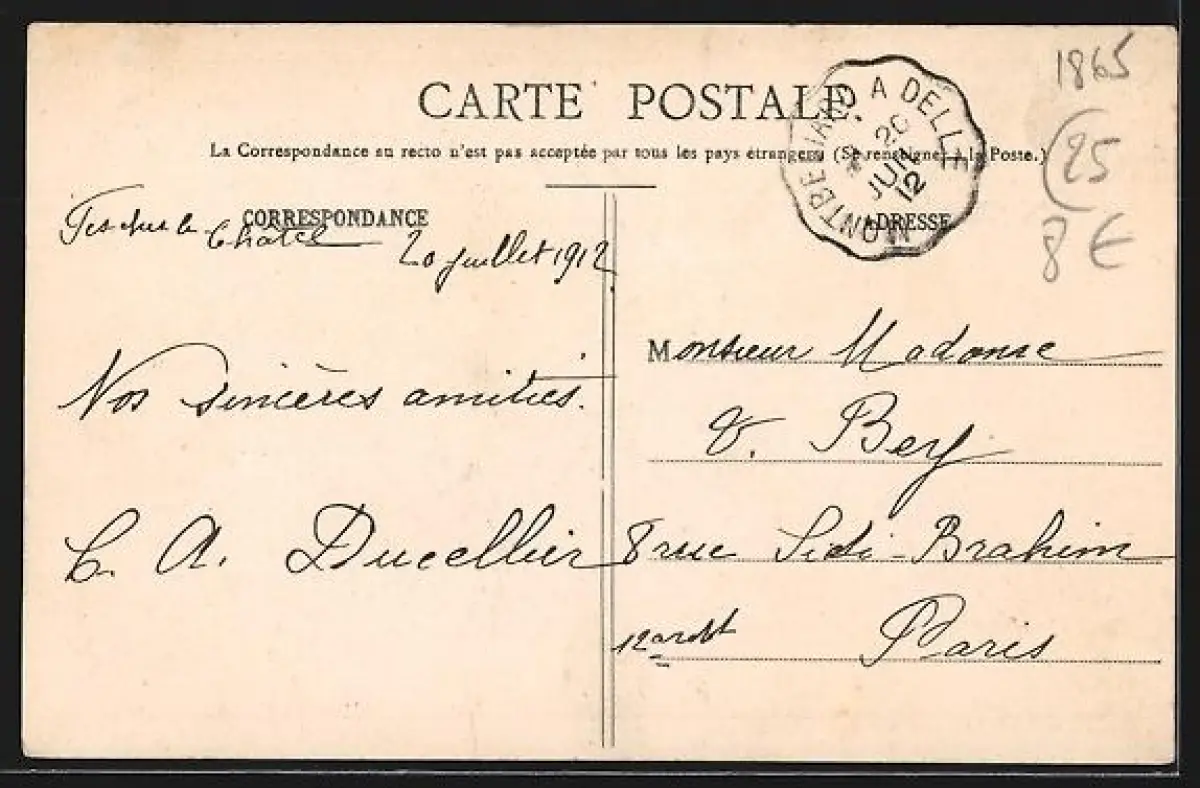 CARTE POSTALE.
La Correspondance au recto n'est pas acceptée par tous les pays étrangers (Se renseigner à la Poste.)
MONTBELIARD A DELLE
20
JUIL
12
1865
25
8 €
CORRESPONDANCE
Châtel
20 juillet 1912
Nos sincères amitiés.
C. A. Ducellier
ADRESSE
Monsieur Madame
V. Bey
8 rue Sidi-Brahim
12 ardt Paris